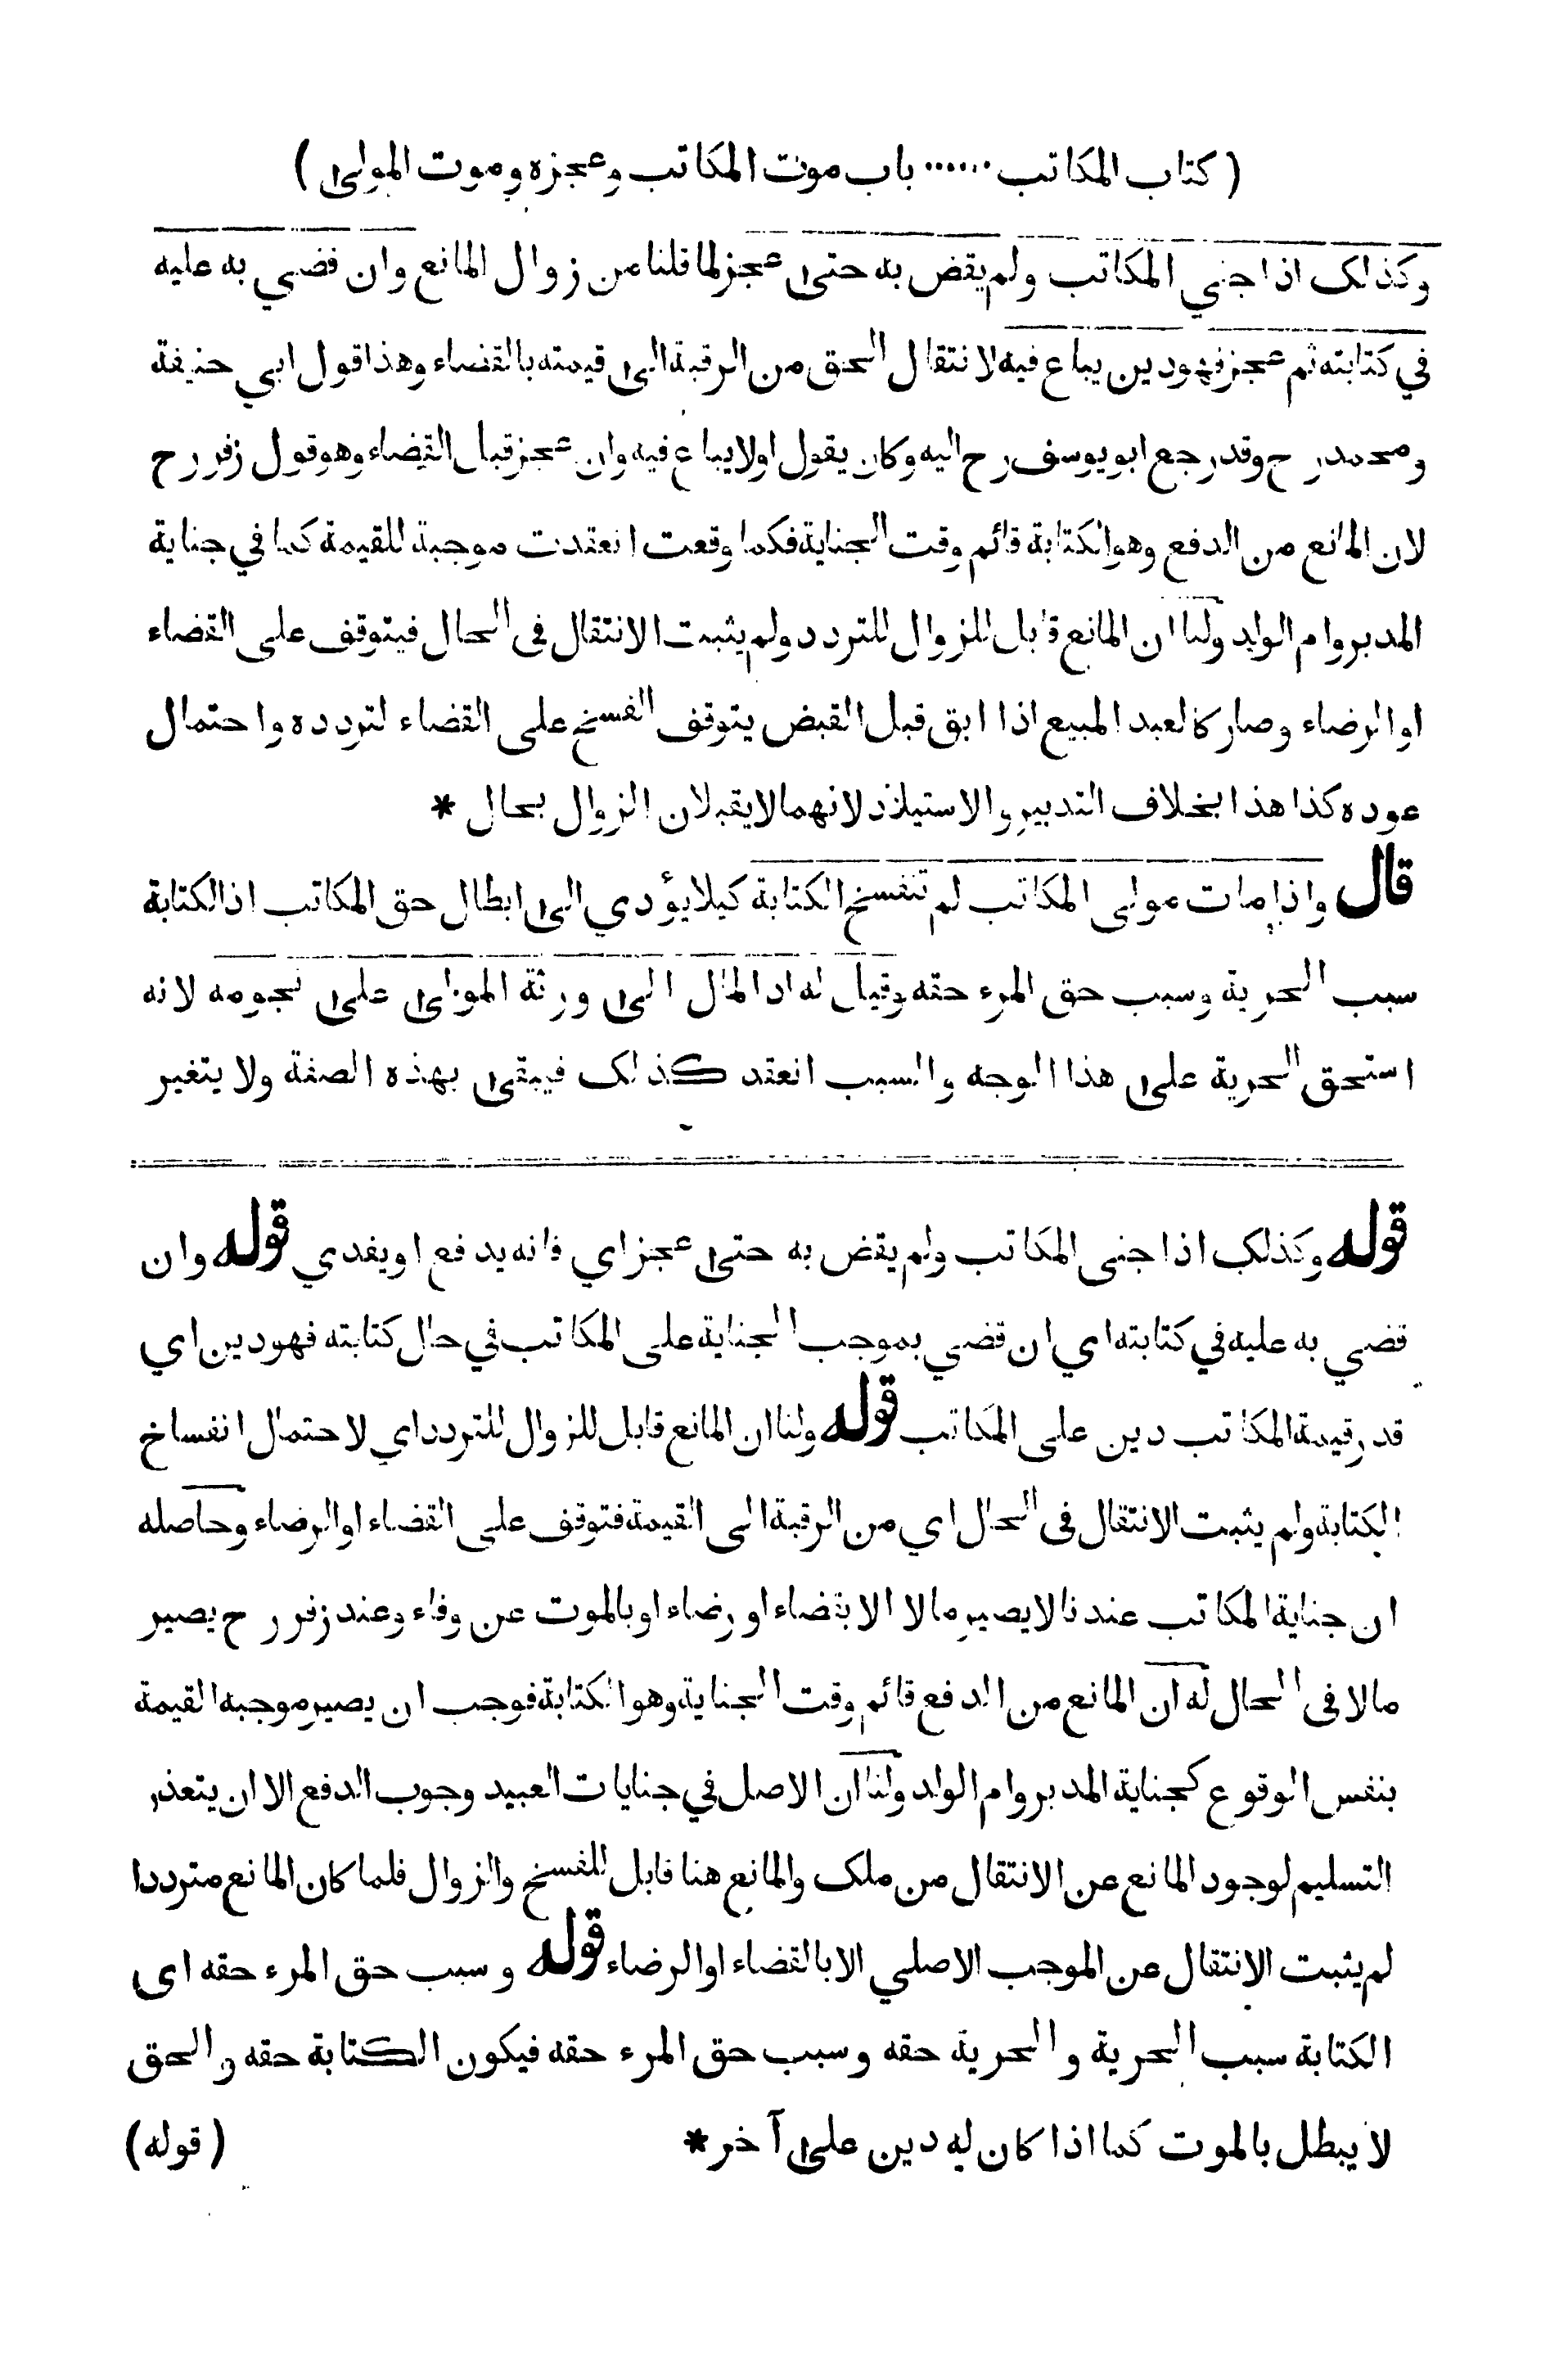 ( كتاب المكاتب ...... باب موت المكاتب وعجزه وموت المولى )
وكذلك اذا جني المكاتب ولم يقض به حتى عجز لما قلنا من زوال المانع وان قضي به عليه
في كتابته ثم عجز فهو دين يباع فيه لانتقال الحق من الرقبة الى قيمته بالقضاء وهذا قول ابي حنيفة
ومحمد رح وقد رجع ابو يوسف رح اليه وكان يقول اولا يباع فيه وان عجز قبل القضاء وهو قول زفر رح
لان المانع من الدفع وهو الكتابة قائم وقت الجناية فكما وقعت انعقدت موجبة للقيمة كما في جناية
المدبر وام الولد ولنا ان المانع قابل للزوال للتردد ولم يثبت الانتقال فى الحال فيتوقف على القضاء
او الرضاء وصار كالعبد المبيع اذا ابق قبل القبض يتوقف الفسخ على القضاء لتردده واحتمال
عوده كذا هذا بخلاف التدبير والاستيلاد لانهما لا يقبلان الزوال بحال *
قال واذا مات مولى المكاتب لم تنفسخ الكتابة كيلا يؤدي الى ابطال حق المكاتب اذ الكتابة
سبب الحرية وسبب حق المرء حقه وقيل له اد المال الى ورثة المولى على نجومه لانه
استحق الحرية على هذا الوجه والسبب انعقد كذلك فيبقى بهذه الصفة ولا يتغير
قوله وكذلك اذا جنى المكاتب ولم يقض به حتى عجز اي فانه يدفع او يفدي قوله وان
قضي به عليه في كتابته اي ان قضي بموجب الجناية على المكاتب في حال كتابته فهو دين اي
قدر قيمة المكاتب دين على المكاتب قوله ولنا ان المانع قابل للزوال للتردد اي لاحتمال انفساخ
الكتابة ولم يثبت الانتقال فى الحال اي من الرقبة الى القيمة فتوقف على القضاء او الرضاء وحاصله
ان جناية المكاتب عندنا لا يصير مالا الا بقضاء او رضاء او بالموت عن وفاء وعند زفر رح يصير
مالا فى الحال له ان المانع من الدفع قائم وقت الجناية وهو الكتابة فوجب ان يصير موجبه القيمة
بنفس الوقوع كجناية المدبر وام الولد ولنا ان الاصل في جنايات العبيد وجوب الدفع الا ان يتعذر
التسليم لوجود المانع عن الانتقال من ملك والمانع هنا قابل للفسخ والزوال فلما كان المانع مترددا
لم يثبت الانتقال عن الموجب الاصلي الا بالقضاء او الرضاء قوله وسبب حق المرء حقه اى
الكتابة سبب الحرية والحرية حقه وسبب حق المرء حقه فيكون الكتابة حقه والحق
لا يبطل بالموت كما اذا كان له دين على آخر *
( قوله )